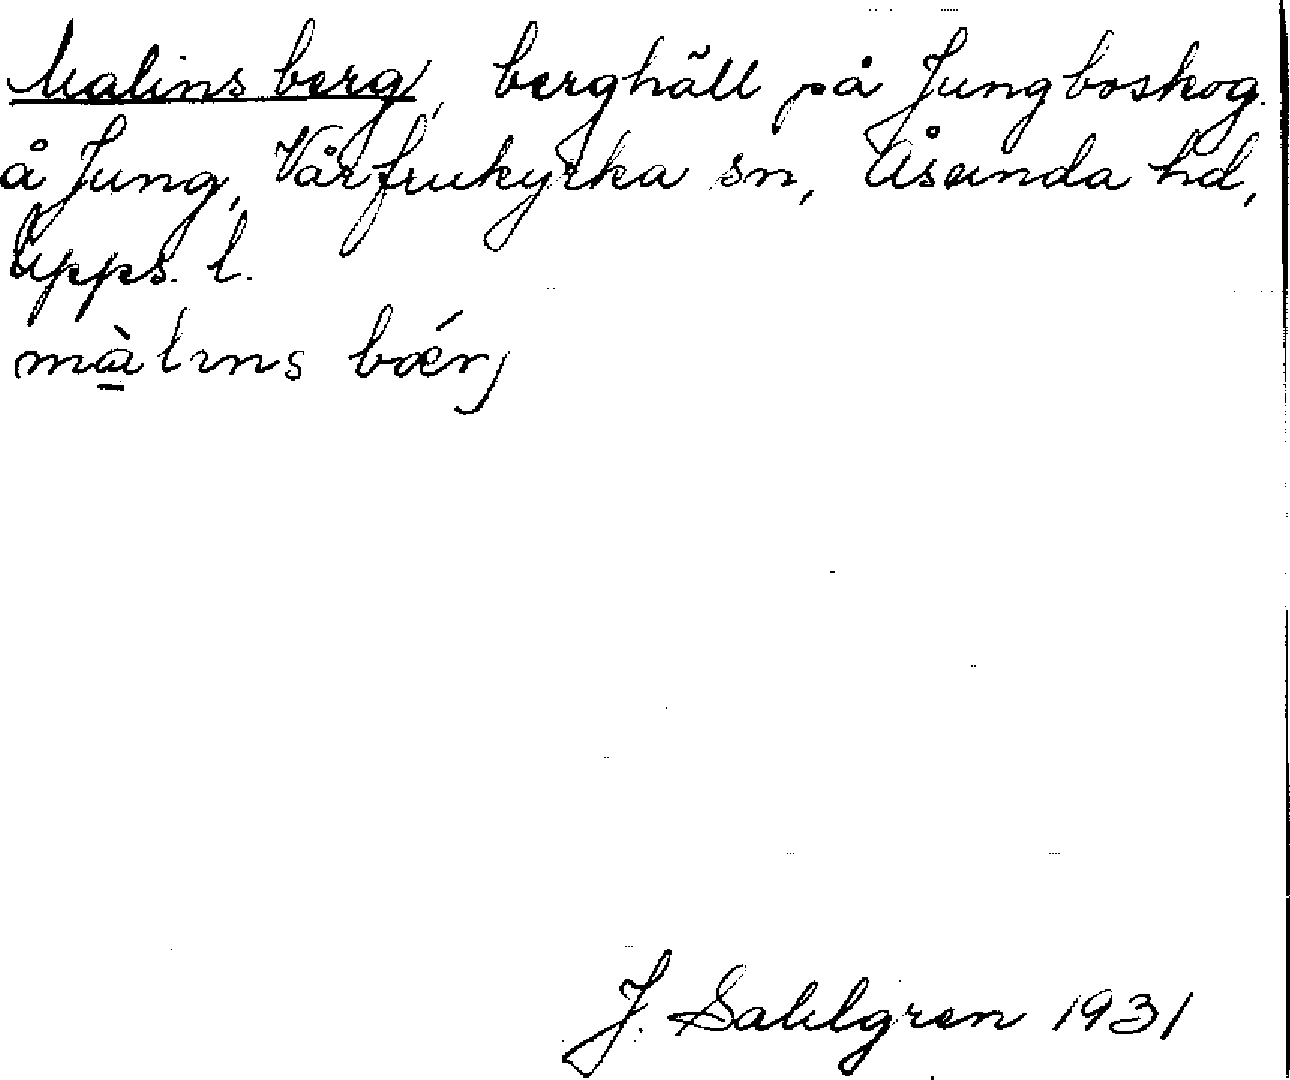 Malins berg, berghäll på Jungboskog
å Jung, Vårfrukyrka sn, Åsunda hd,
Upps. l.
màlıns bǽrj
J. Sahlgren 1931